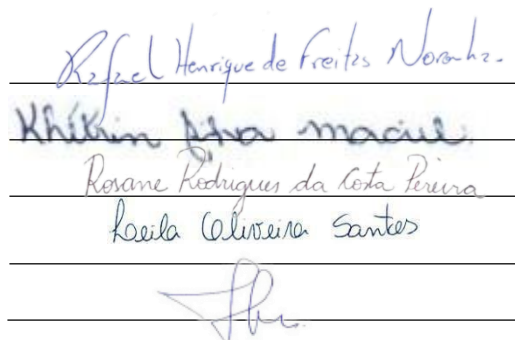 Rafael Henrique de Freitas Noronha.
Khítrin Silva maciel.
Rosane Rodrigues da Costa Pereira
Leila Oliveira Santos